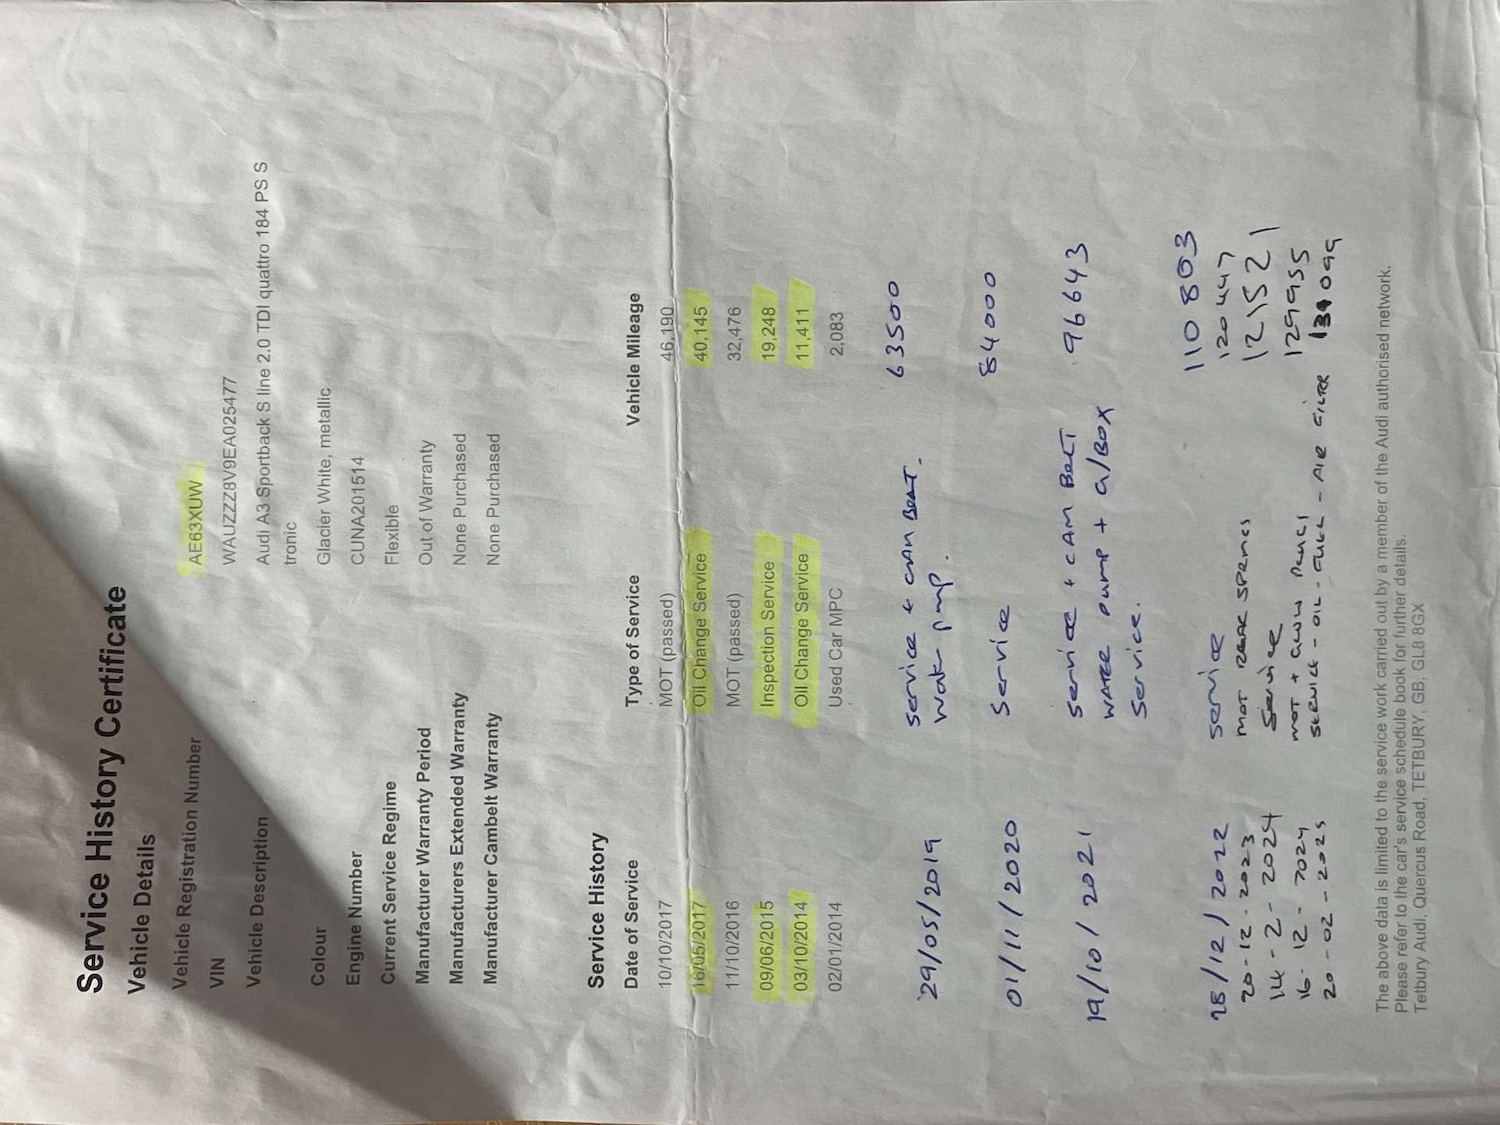 Service History Certificate
Vehicle Details
Vehicle Registration Number AE63XUW
VIN WAUZZZ8V9EA025477
Vehicle Description Audi A3 Sportback S line 2.0 TDI quattro 184 PS S
tronic
Colour Glacier White, metallic
Engine Number CUNA201514
Current Service Regime Flexible
Manufacturer Warranty Period Out of Warranty
Manufacturers Extended Warranty None Purchased
Manufacturer Cambelt Warranty None Purchased
Service History
Date of Service Type of Service Vehicle Mileage
10/10/2017 MOT (passed) 46,190
16/05/2017 Oil Change Service 40,145
11/10/2016 MOT (passed) 32,476
09/06/2015 Inspection Service 19,248
03/10/2014 Oil Change Service 11,411
02/01/2014 Used Car MPC 2,083
29/05/2019 service + cam 63500
pump.
01/11/2020 Service 84000
19/10/2021 service + CAM BELT 96643
WATER pump + G/BOX
Service.
28/12/2022 service 110803
20-12-2023 MOT REAR SPRINGS 120447
14-2-2024 Service 121521
16-12-2024 MOT + GLOW 129955
20-02-2025 SERVICE - OIL - FUEL - AIR FILTER 099
The above data is limited to the service work carried out by a member of the Audi authorised network.
Please refer to the car's service schedule book for further details.
Tetbury Audi, Quercus Road, TETBURY, GB, GL8 8GX